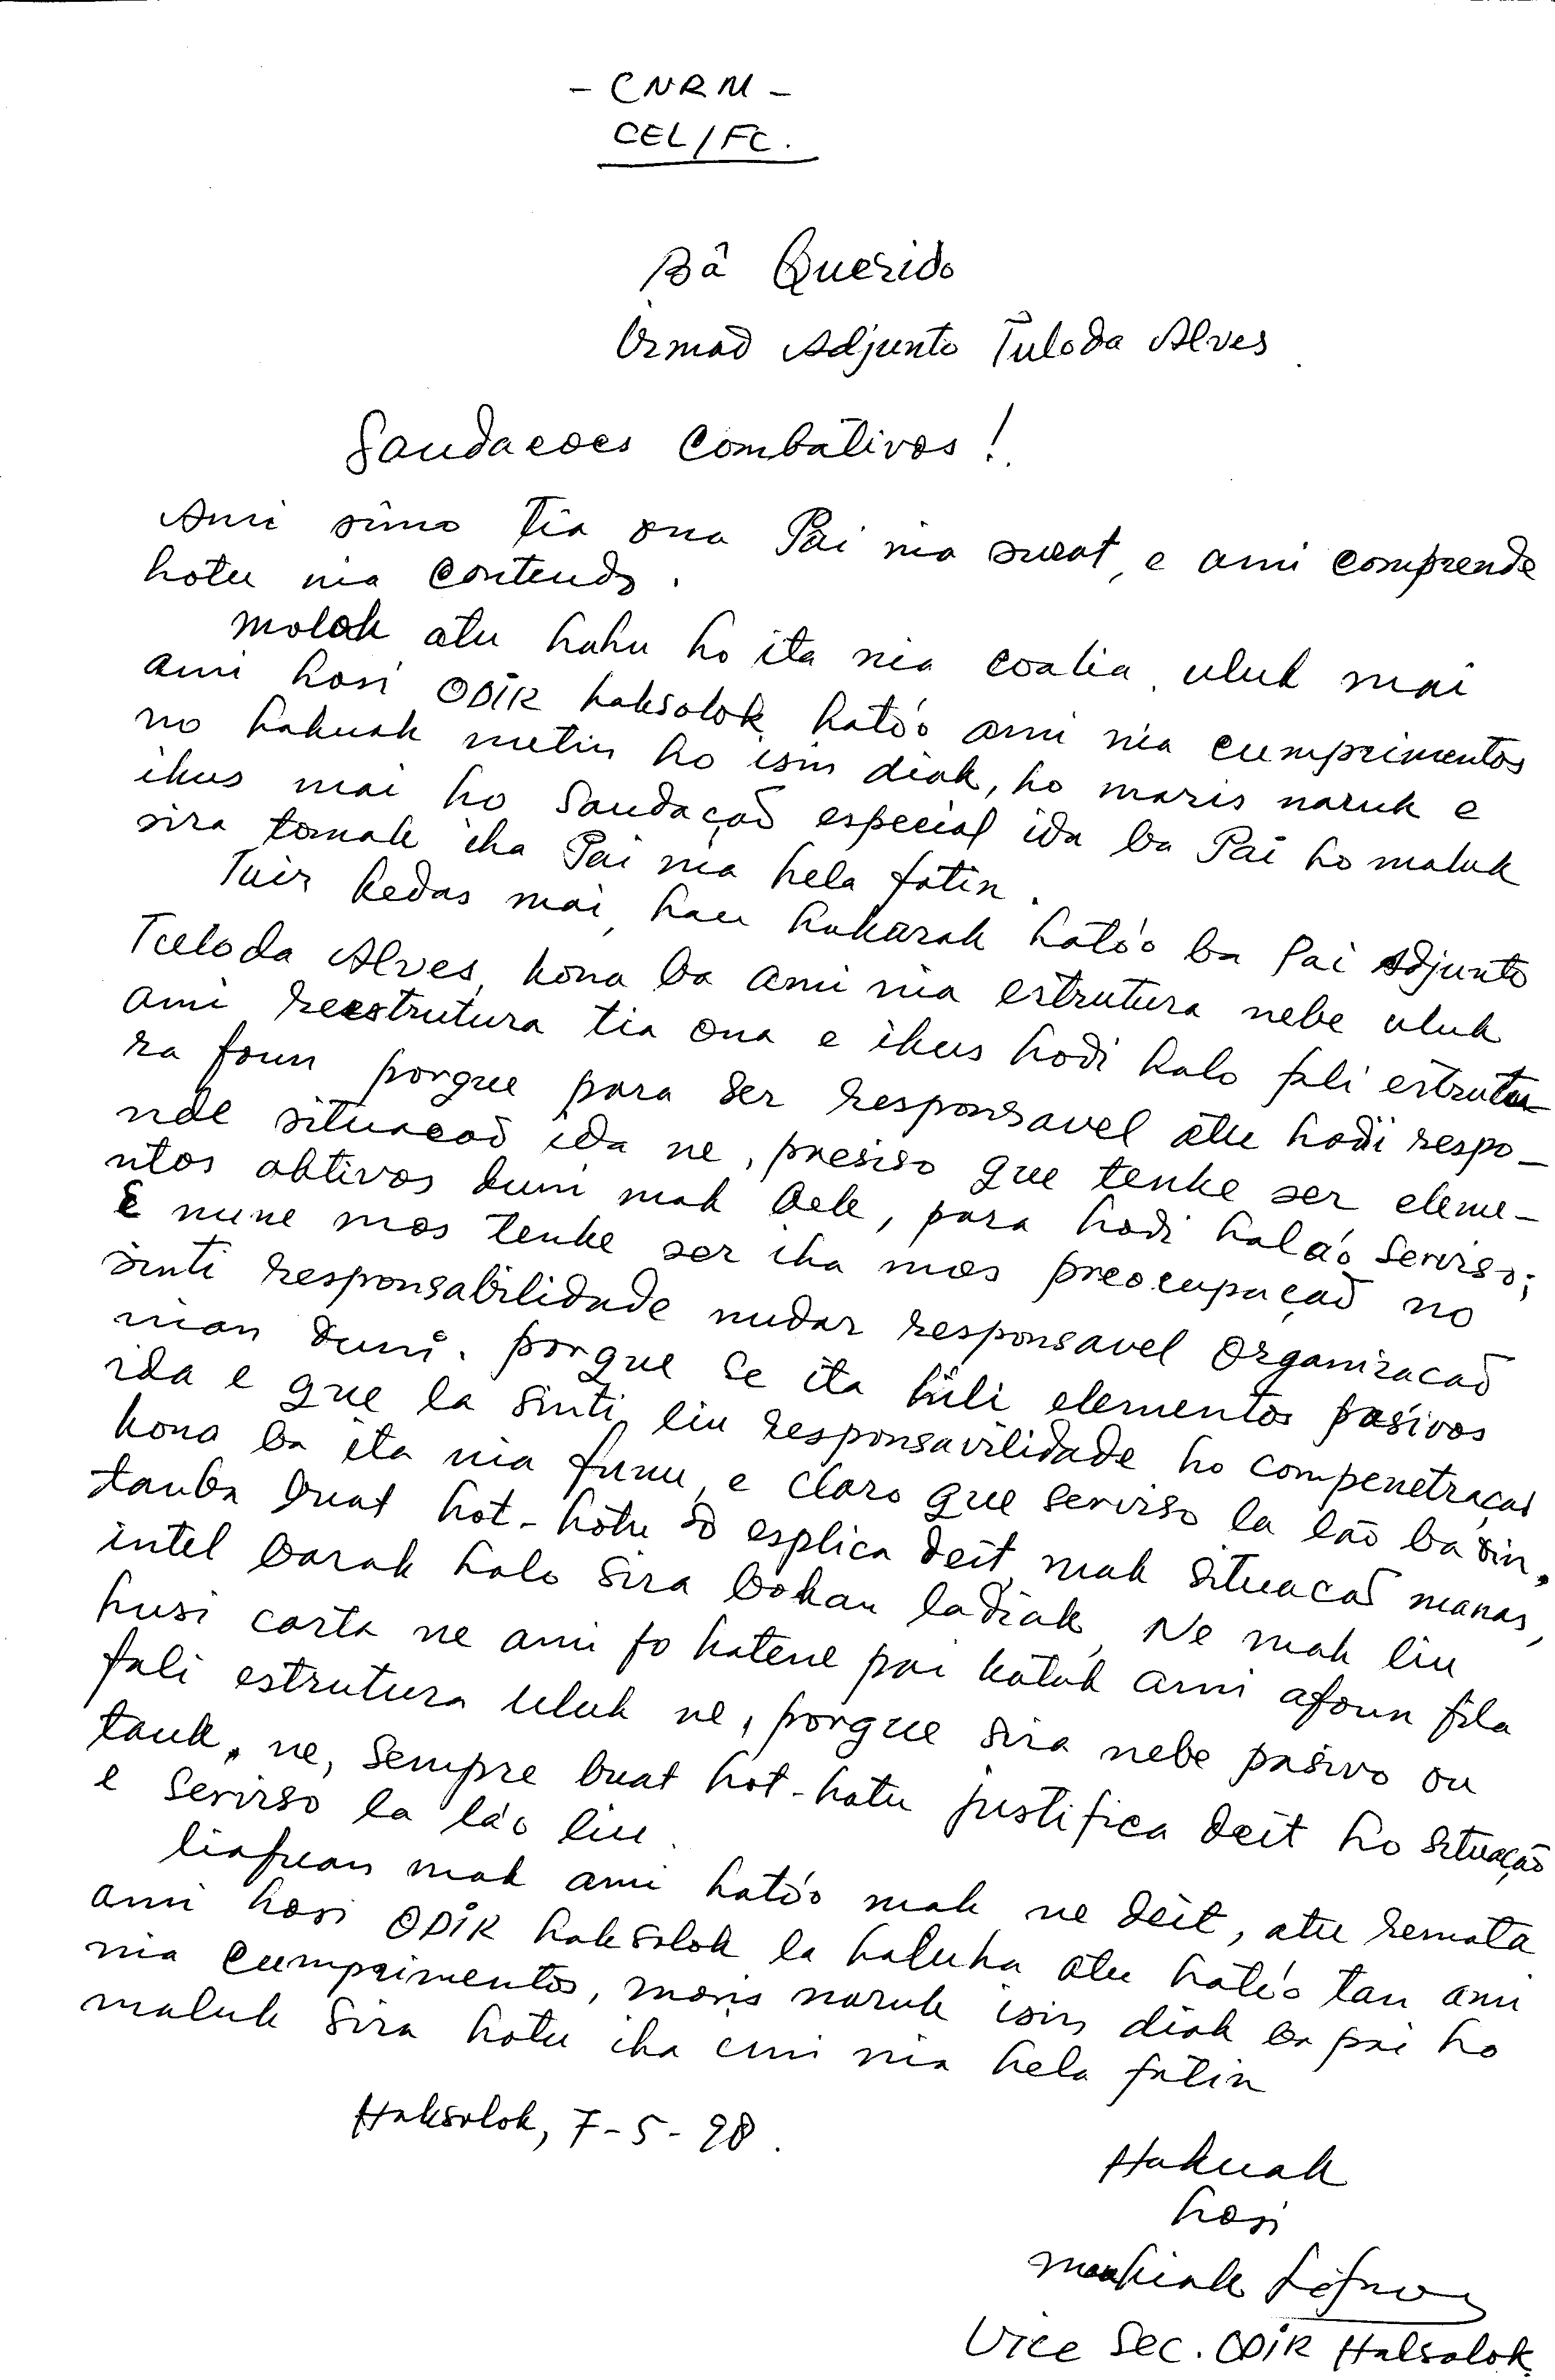 - CNRM -
CEL/FC.
Bâ Querido
Irmaõ Adjunto Tuloda Alves
Saudacoes Combativos!
Ami simo tia ona Pai nia surat, e ami comprende
hotu nia contendo.
molok atu hahu ho ita nia coalia, uluk mai
ami hosi ODIR haksolok, ható'o ami nia cumprimentos
no hakuak metin ho isin diak, ho maris naruk e
ikus mai ho Saudaçaõ especial ida ba Pai ho maluk
sira tomak iha Pai nia hela fatin.
Tuir kedas mai, hau hakarak ható'o ba Pai Adjunto
Tuloda Alves, kona ba ami nia estrutura nebe uluk
ami reestrutura tia ona e ikus hodi halo fali estrutu-
ra foun porque para ser responsavel atu hodi respo-
nde situacaõ ida ne, presiso que tenke ser eleme-
ntos aktivos duni mak bele, para hodi halá'o servirso;
E nune mos tenke ser iha mos preocupaçaõ no
sinti responsabilidade nudar responsavel organizacaõ
nian duni. porque se ita hili elementos pasivos
ida e que la sinti liu responsavilidade ho compenetraçaõ
kona ba ita nia funu, e claro que servirso la lão ba oin,
tanba buat hot-hotu só esplica deit, mak situacaõ manas,
intel barak halo sira bokan ladiak, Ne mak liu
husi carta ne ami fo hatene pai katak ami afoun fila
fali estrutura uluk ne, porque sira nebe pasivo ou
tauk, ne, sempre buat hot-hotu justifica deit ho situação
e servirso la lá'o liu.
liafuan mak ami ható'o mak ne deit, atu remata
ami hosi ODIR haksolok la haluha atu ható'o tan ami
nia cumprimentos, moris naruk isin diak ba pai ho
maluk sira hotu iha imi nia hela fatin
Haksolok, 7-5-98.
Hakuak
hosi
Vice Sec. ODIR Haksolok.